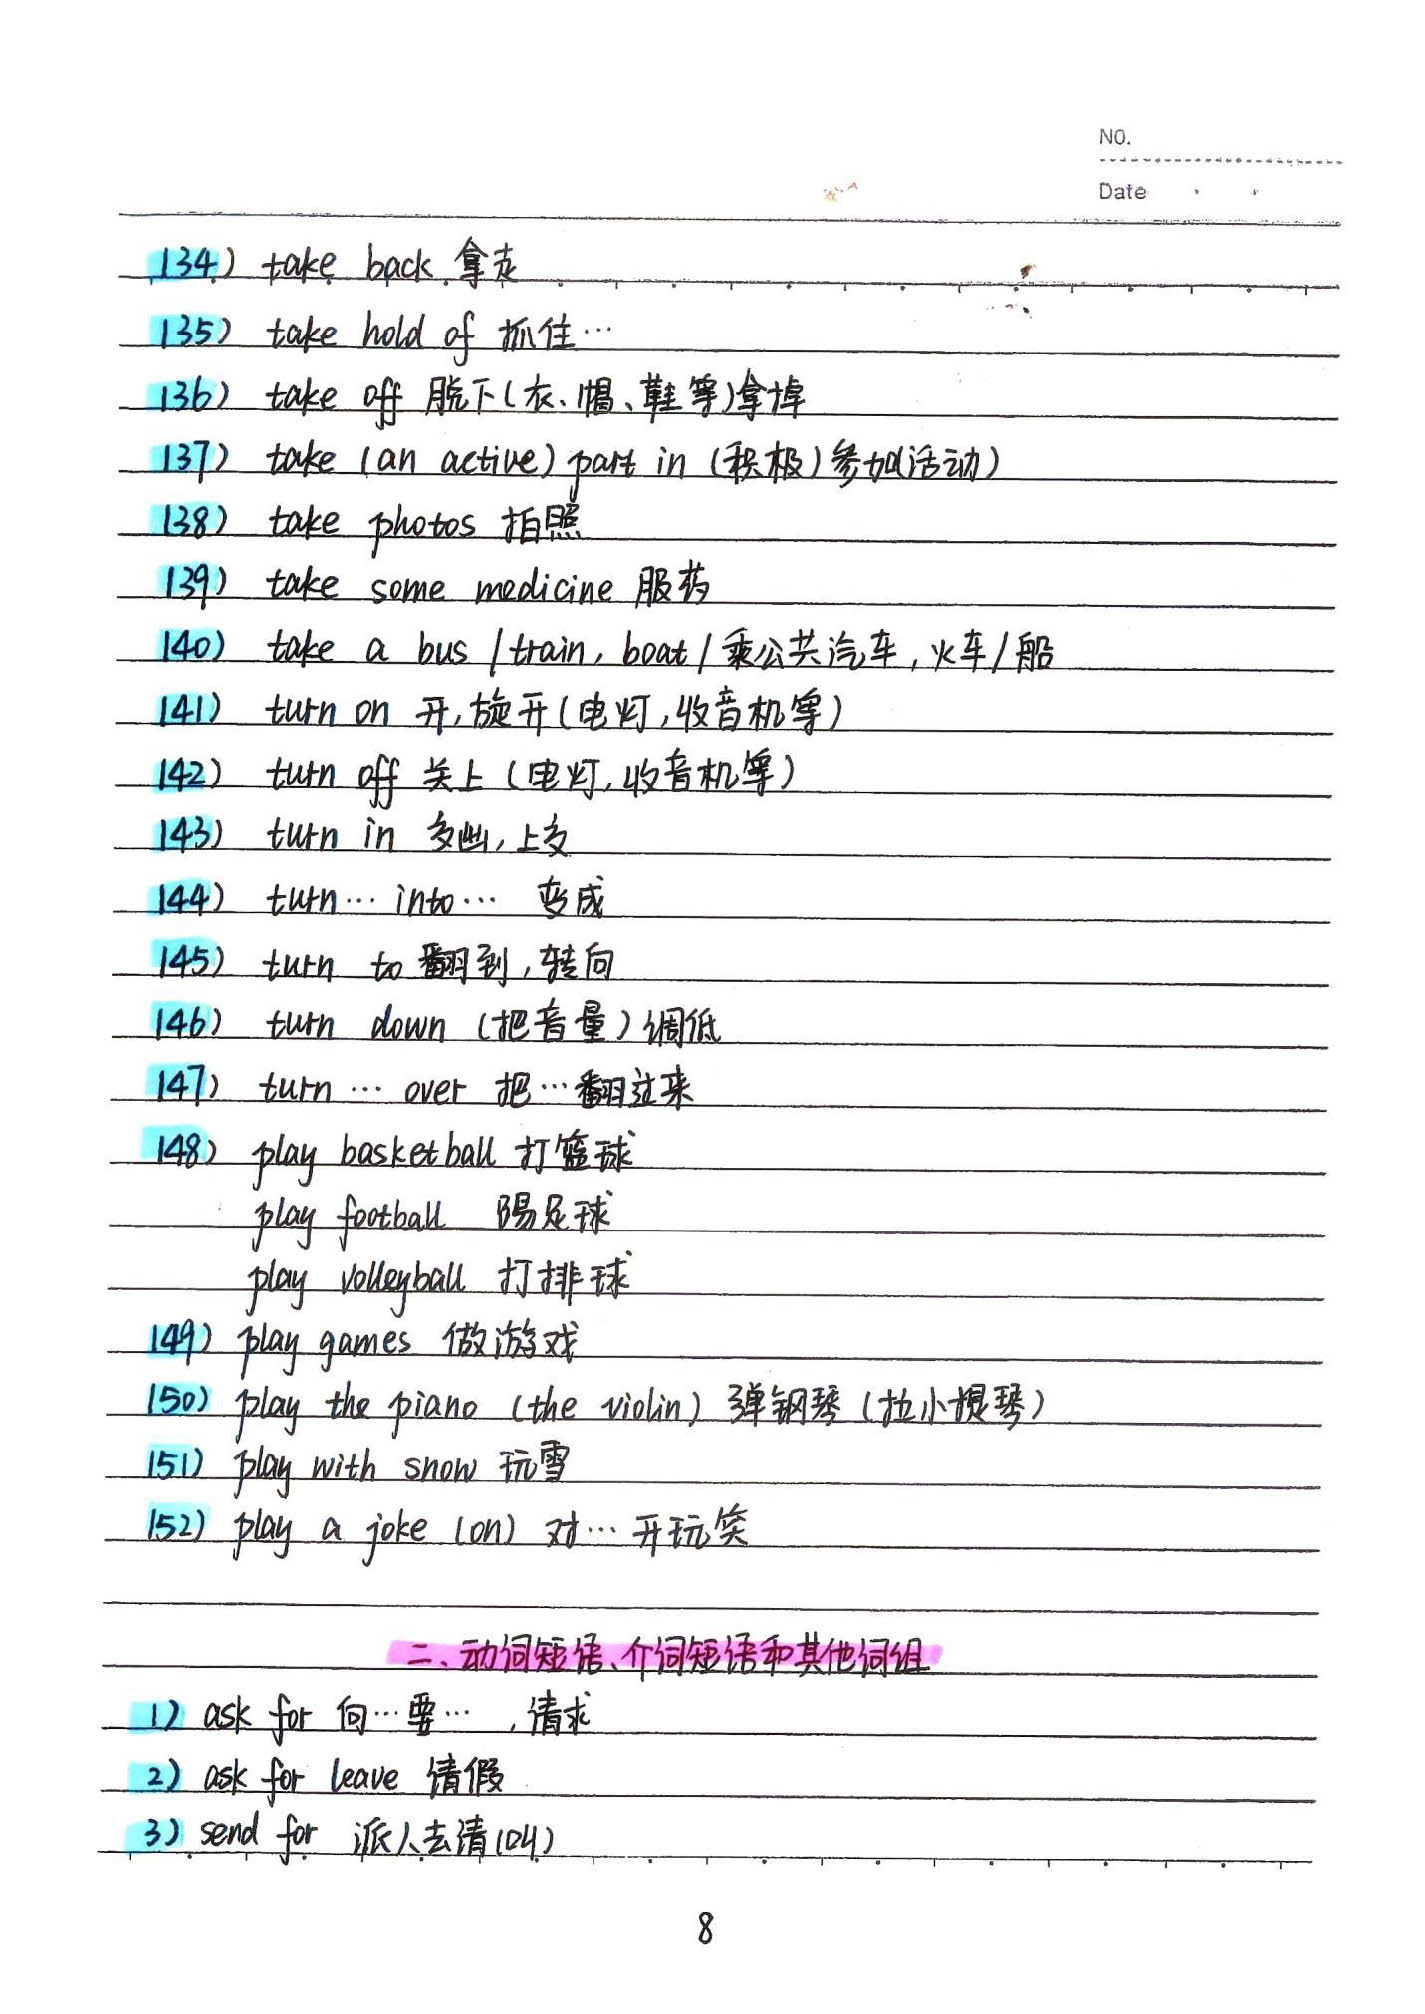 NO.
Date
134) take back 拿走
135) take hold of 抓住…
136) take off 脱下(衣、帽、鞋等)拿掉
137) take (an active) part in (积极)参加(活动)
138) take photos 拍照
139) take some medicine 服药
140) take a bus /train, boat/ 乘公共汽车,火车/船
141) turn on 开,旋开(电灯,收音机等)
142) turn off 关上(电灯,收音机等)
143) turn in 交出,上交
144) turn… into… 变成
145) turn to 翻到,转向
146) turn down (把音量)调低
147) turn … over 把…翻过来
148) play basketball 打篮球
play football 踢足球
play volleyball 打排球
149) play games 做游戏
150) play the piano (the violin) 弹钢琴(拉小提琴)
151) play with snow 玩雪
152) play a joke (on) 对…开玩笑
二、动词短语、介词短语和其他词组
1) ask for 向…要…,请求
2) ask for leave 请假
3) send for 派人去请(叫)
8